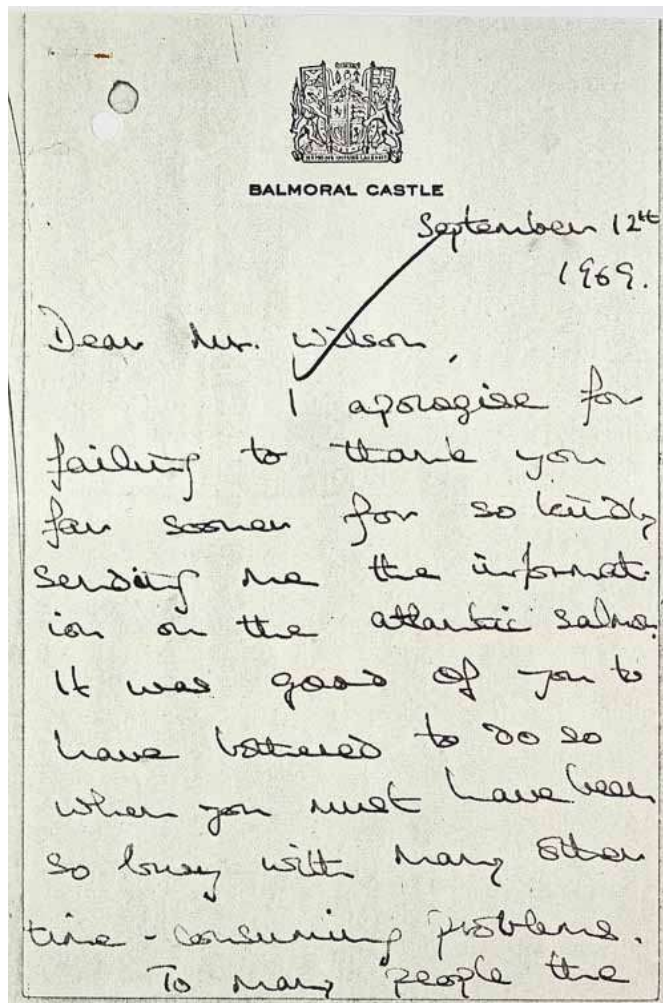 BALMORAL CASTLE
September 12th
1969.
Dear Mr. Wilson,
I apologise for
failing to thank you
far sooner for so kindly
sending me the informat-
ion on the atlantic salmon.
It was good of you to
have bothered to do so
when you must have been
so busy with many other
time-consuming problems.
To many people the